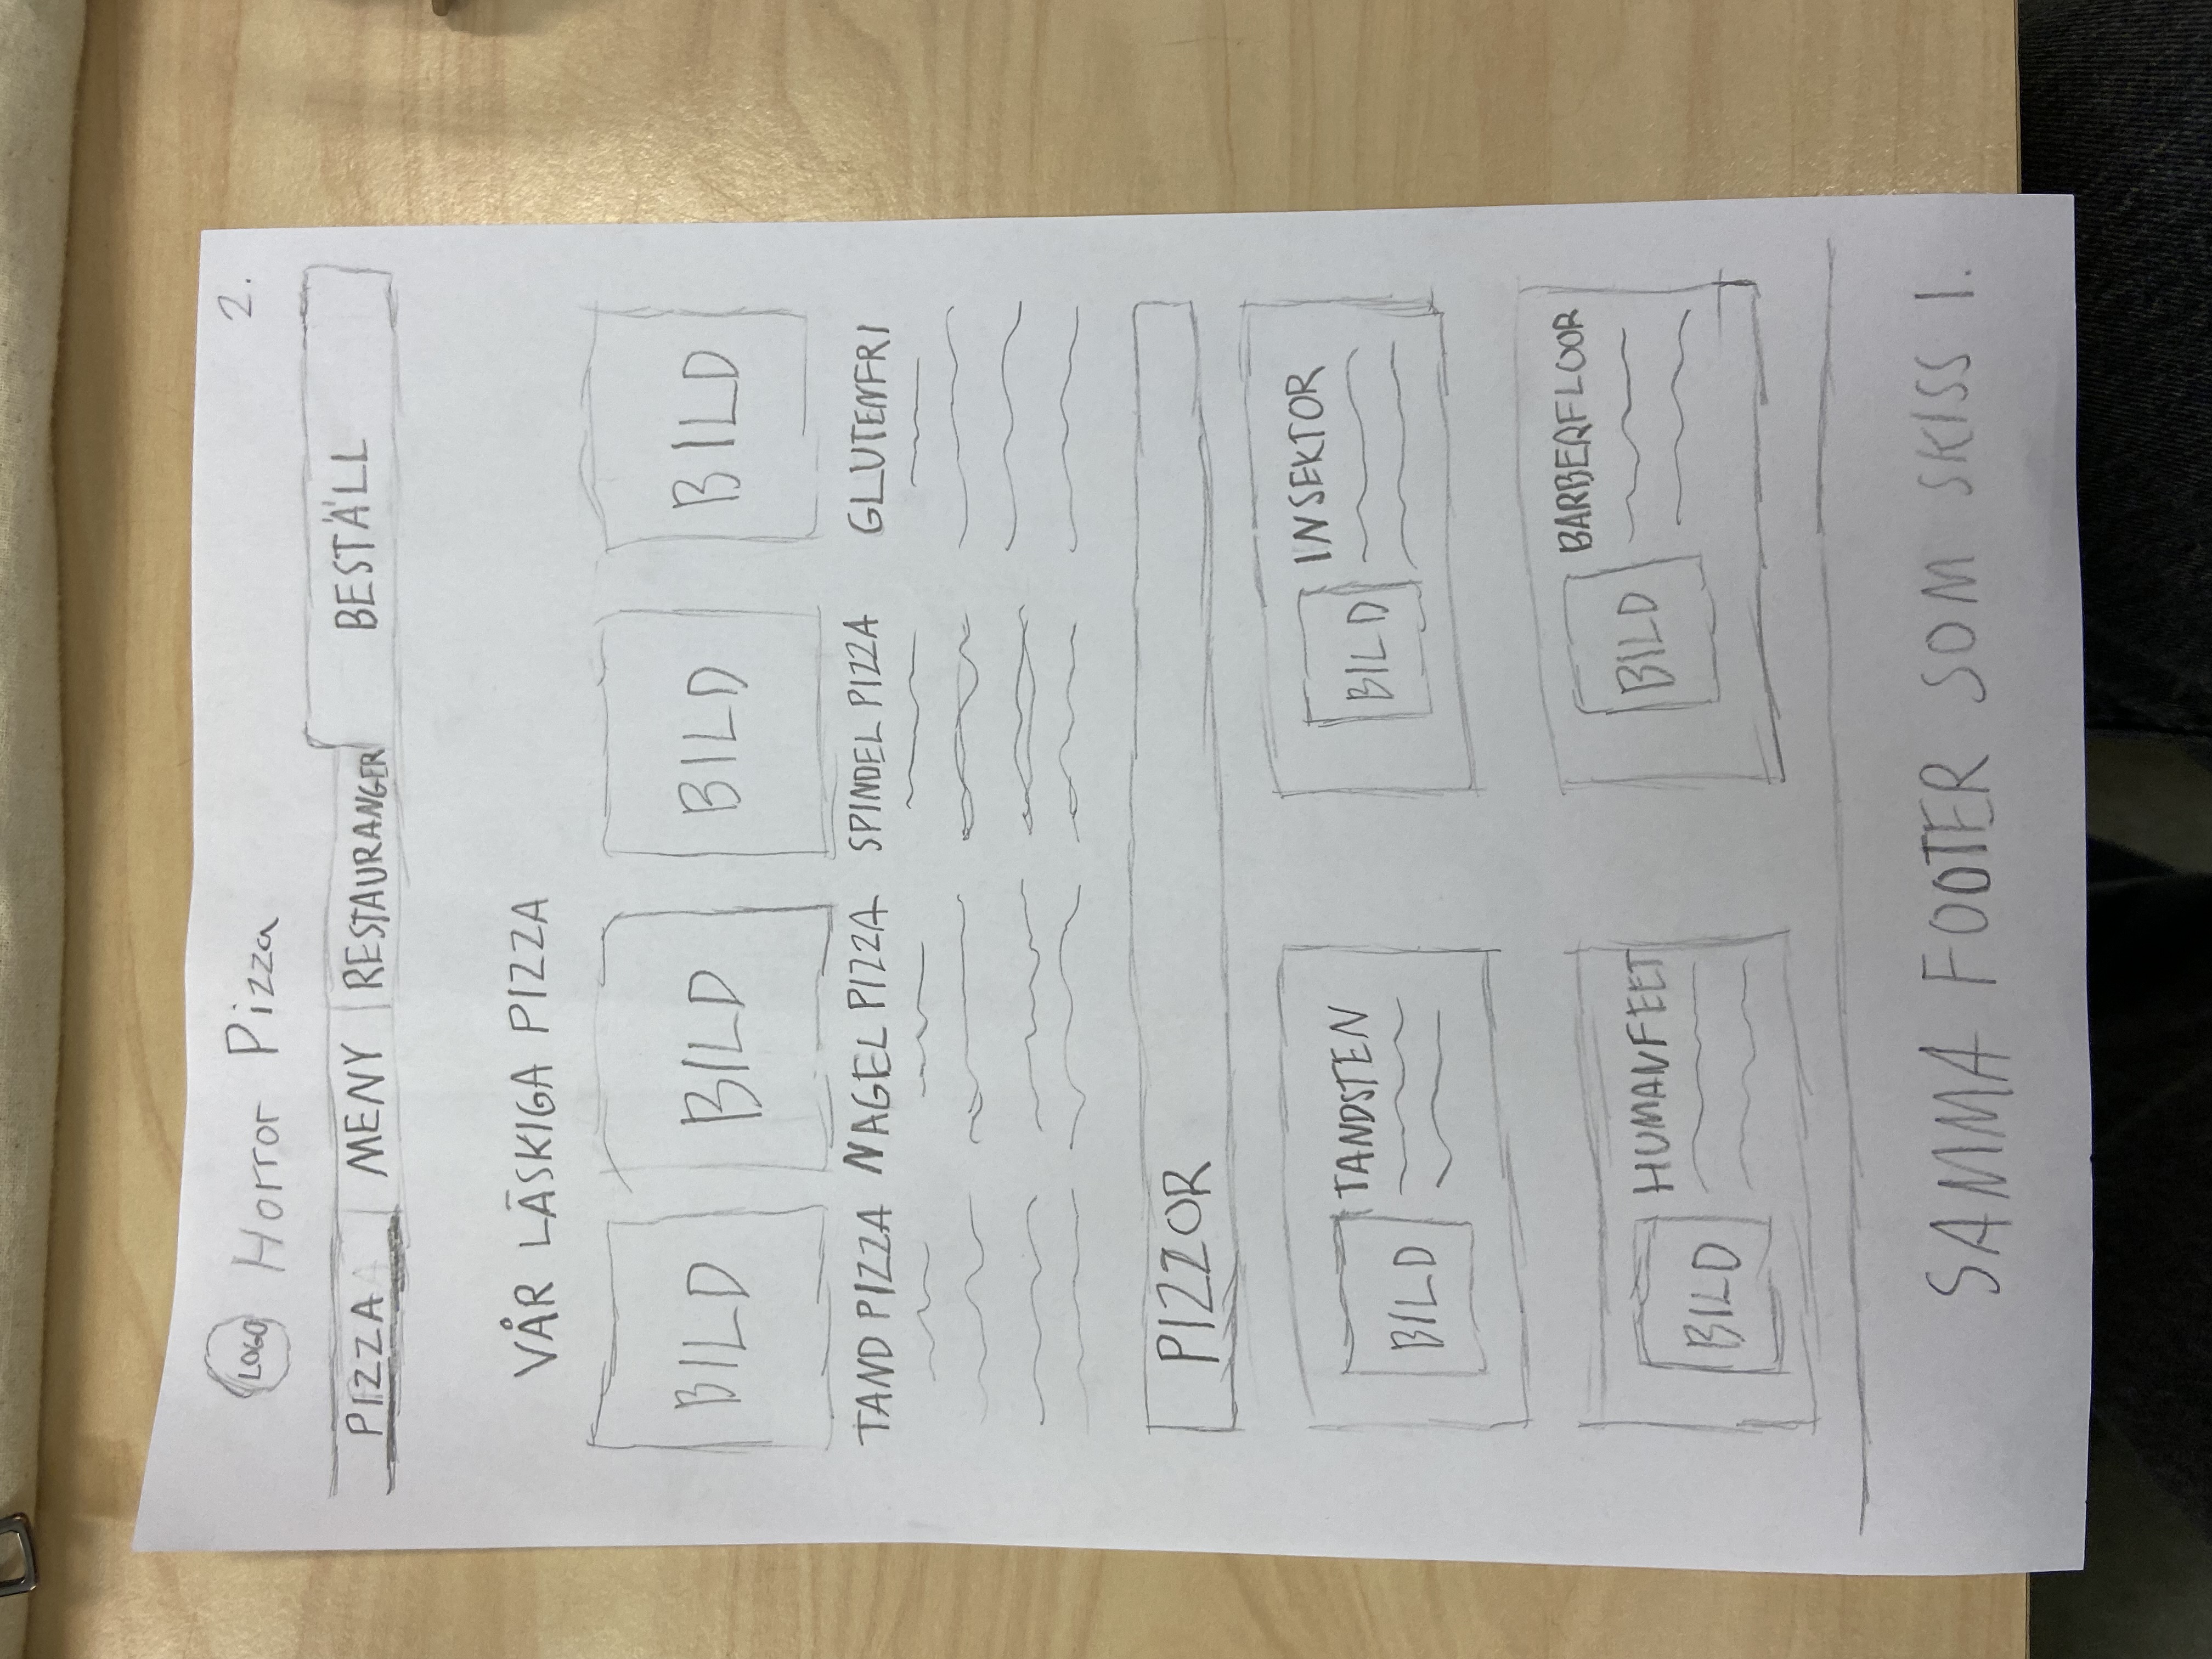 2.
LOGO Horror Pizza
PIZZA MENY RESTAURANGER BESTÄLL
VÅR LÄSKIGA PIZZA
BILD BILD BILD BILD
TAND PIZZA NAGEL PIZZA SPINDEL PIZZA GLUTENFRI
PIZZOR
TANDSTEN
BILD
INSEKTOR
BILD
HUMANFEET
BILD
BARBERFLOOR
BILD
SAMMA FOOTER SOM SKISS 1.